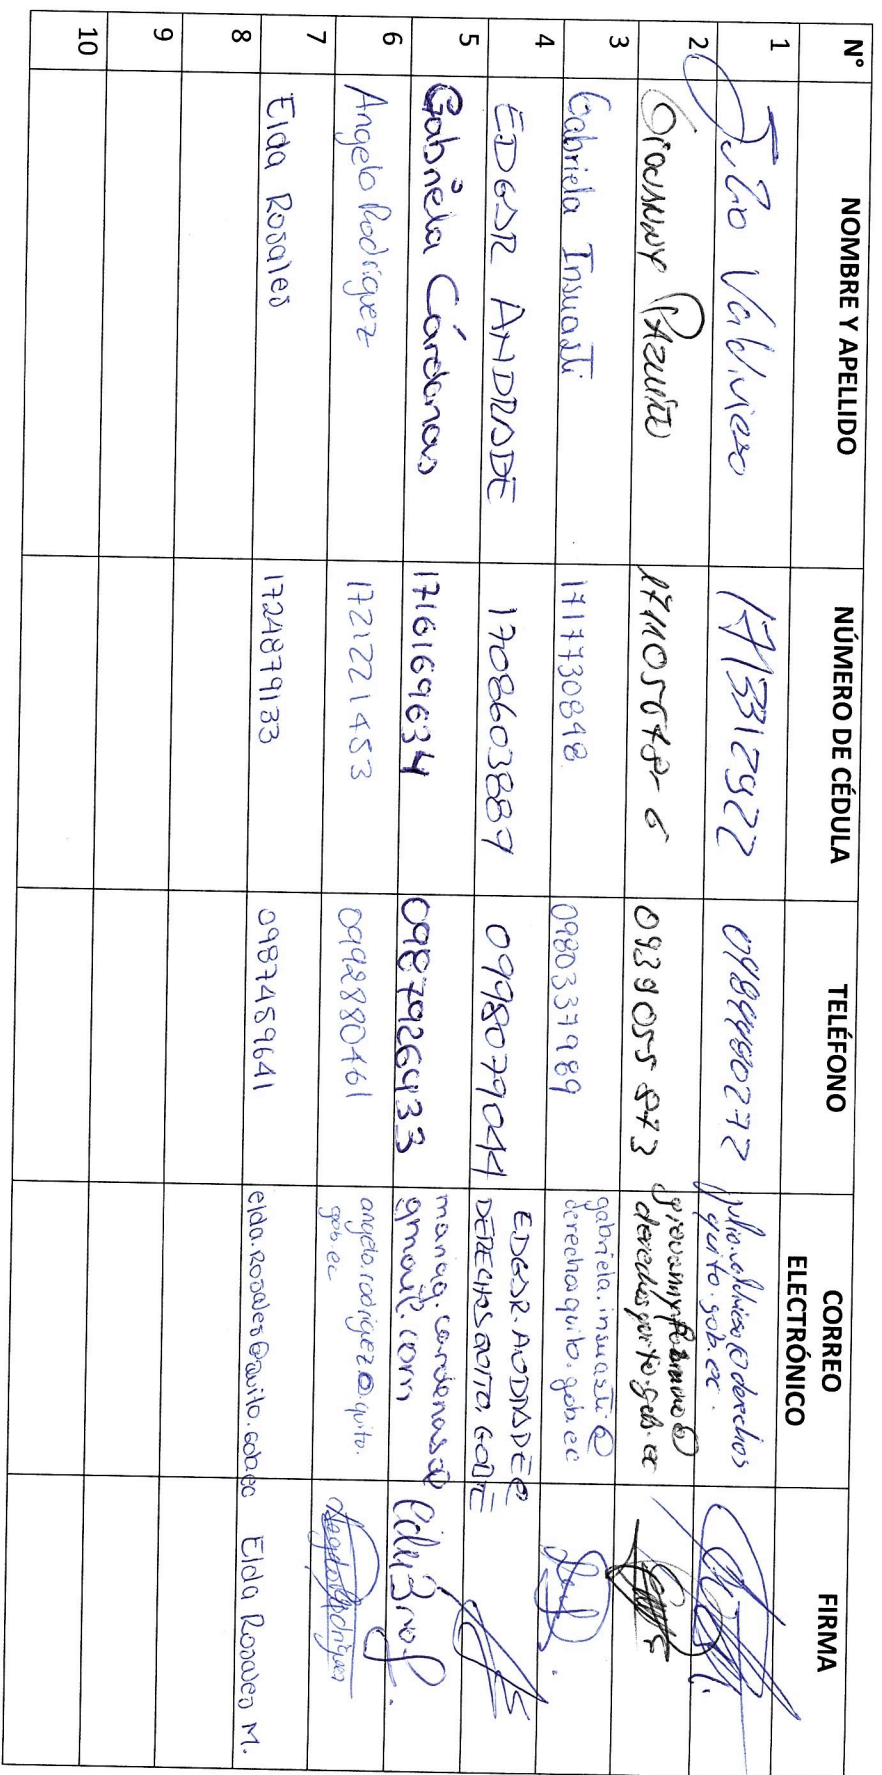 N° NOMBRE Y APELLIDO NÚMERO DE CÉDULA TELÉFONO CORREO ELECTRÓNICO FIRMA
1 Julio Valdivieso 1713312922 julio.valdivieso@derechos
quito.gob.ec.
2 Giovanny
3 Gabriela Insuasti 1717730848 0980337989 gabriela.insuasti@
derechosquito.gob.ec
4 EDGAR ANDRADE 1708603889 0998079044 EDGAR.ANDRADE@
DERECHOSQUITO.GOB.E
5 Gabriela Cárdenas 1716169634 0987926433 mariag.cardenas@
gmail.com
6 Angelo Rodriguez 1721221453 0992880461 angelo.rodriguez@quito.
gob.ec Angelo Rodriguez
7 Elda Rosales 1724879133 0987459641 elda.rosales@quito.gob.ec Elda Rosales M.
8
9
10